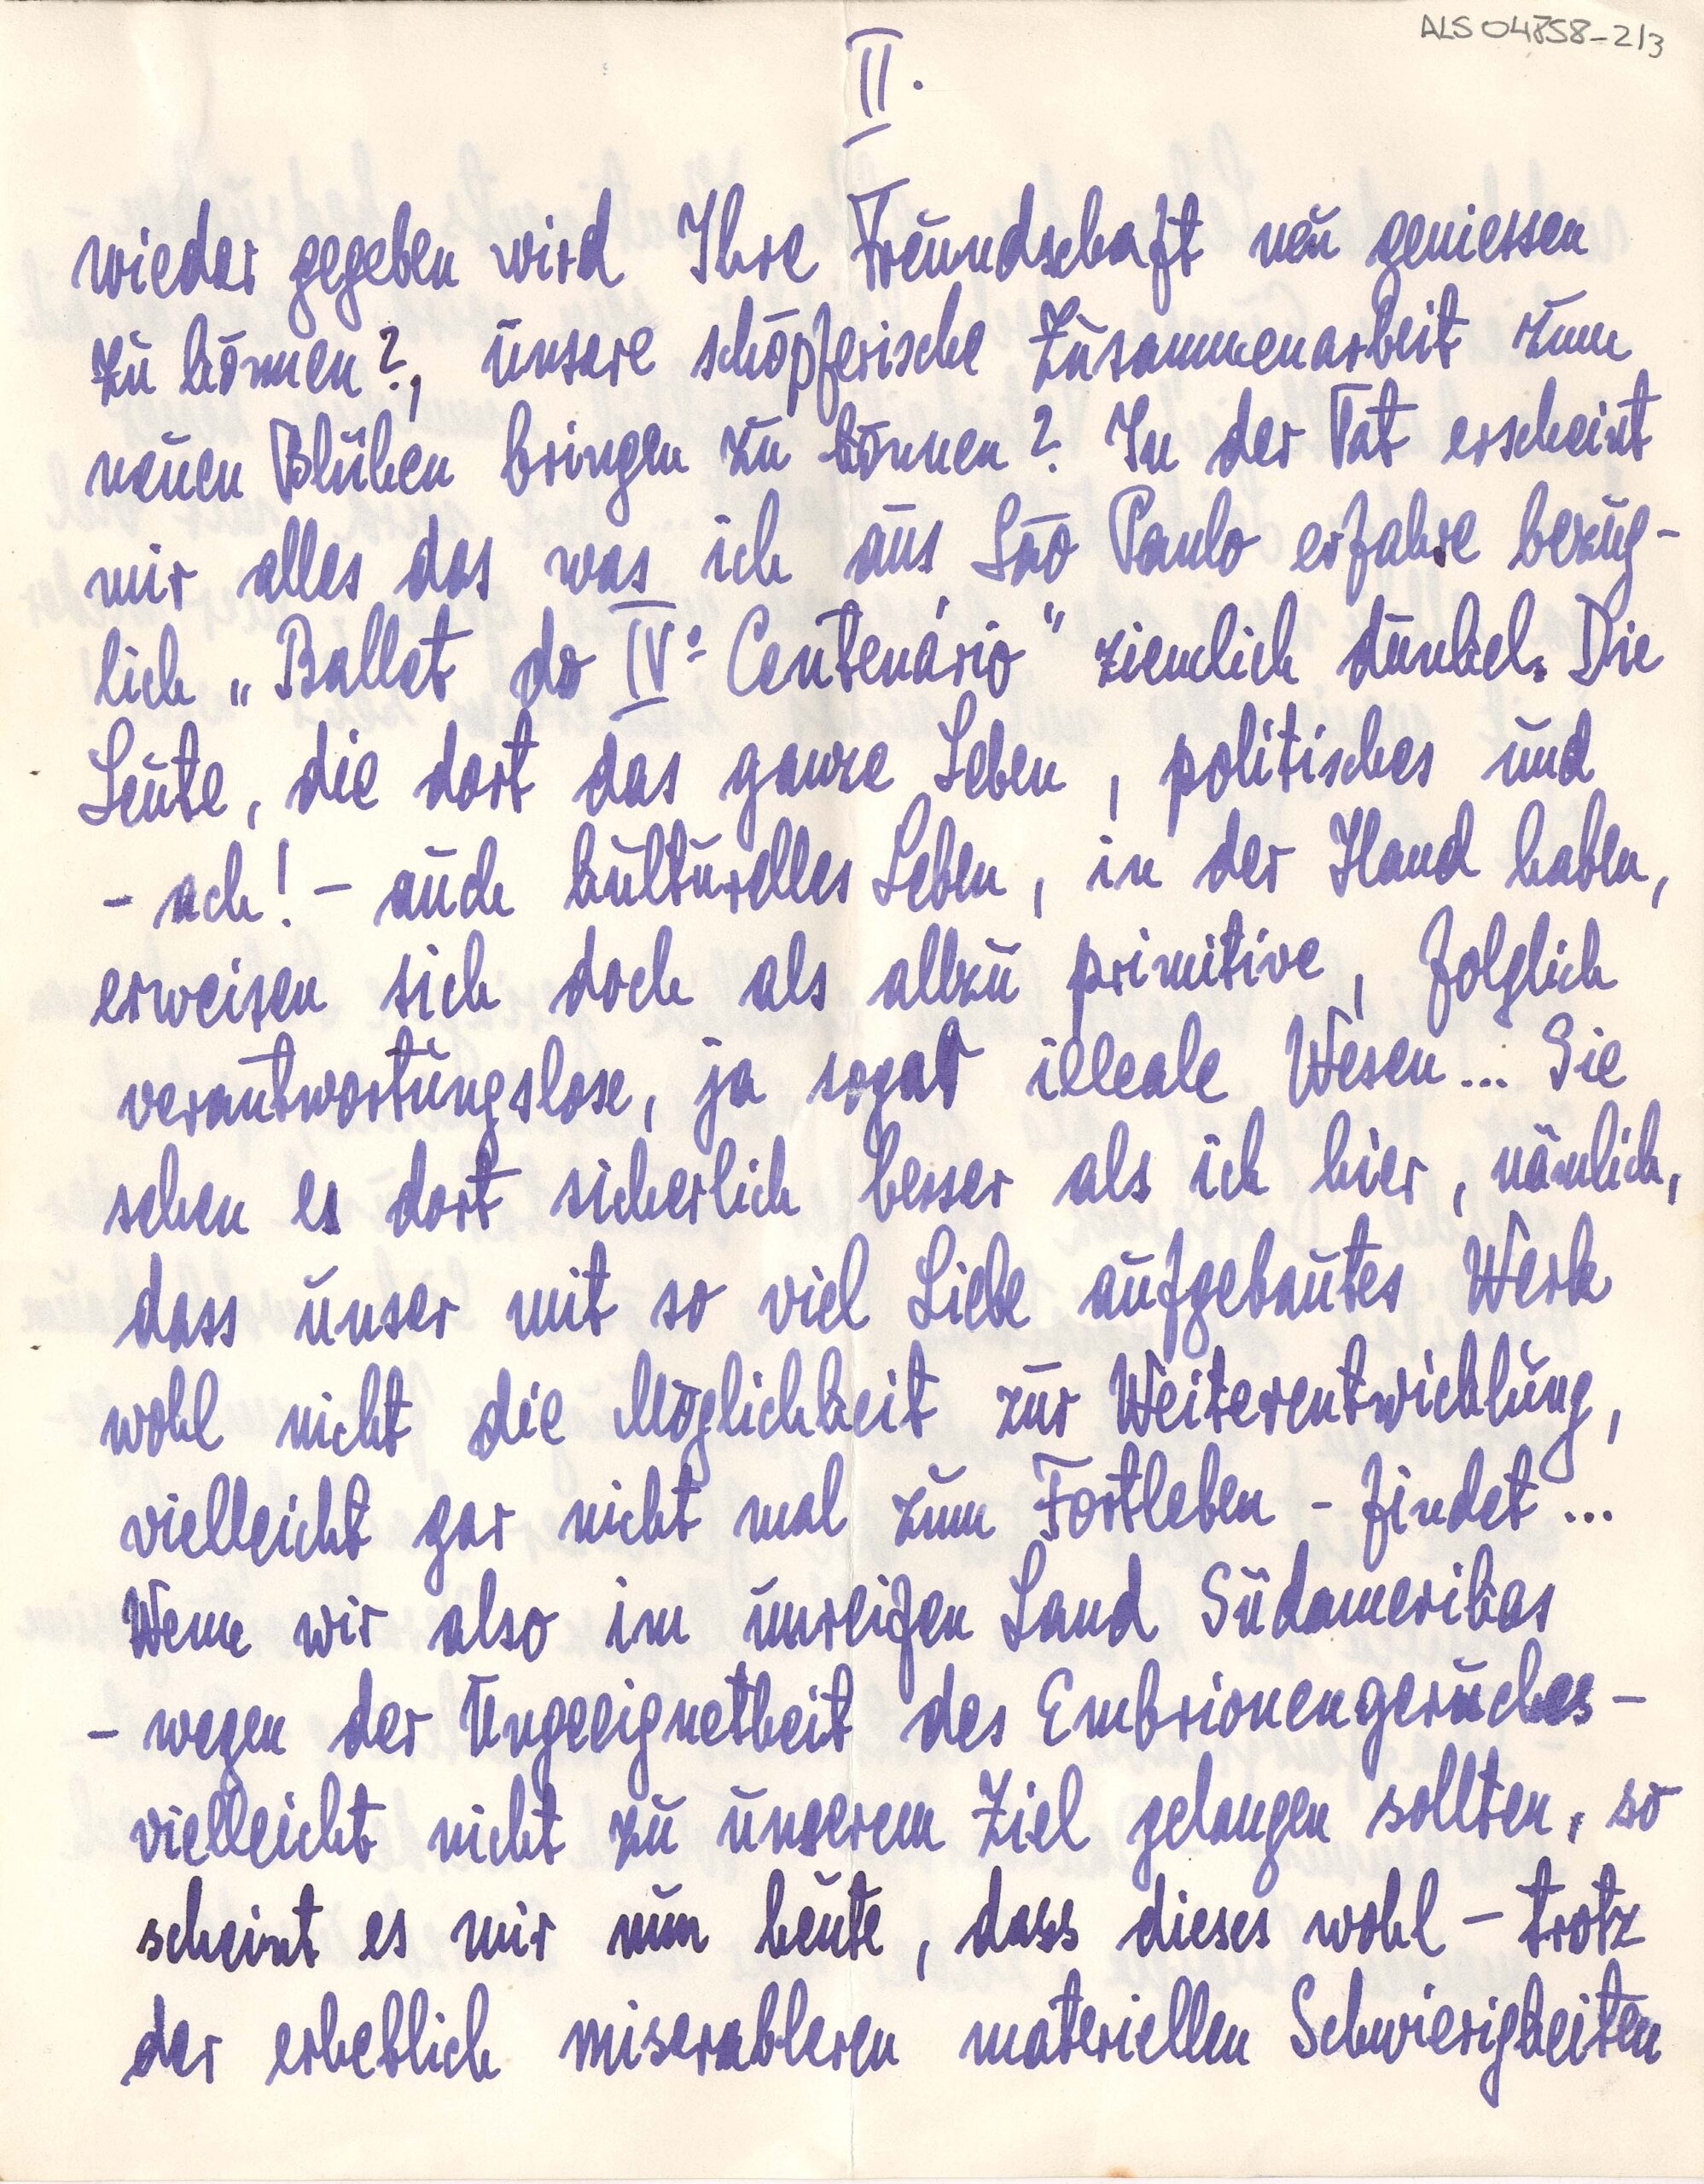 ALS 04858-2/3
II.
wieder gegeben wird Ihre Freundschaft neu geniessen
zu können?, unsere schöpferische Zusammenarbeit zum
neuen Blühen bringen zu können? In der Tat erscheint
mir alles das was ich aus São Paulo erfahre bezüg-
lich „Ballet do IVº Centenário" ziemlich dunkel. Die
Leute, die dort das ganze Leben, politisches und
- ach! - auch kulturelles Leben, in der Hand haben,
erweisen sich doch als allzu primitive, folglich
verantwortungslose, ja sogar illeale Wesen... Sie
sehen es dort sicherlich besser als ich hier, nämlich,
dass unser mit so viel Liebe aufgebautes Werk
wohl nicht die Möglichkeit zur Weiterentwicklung,
vielleicht gar nicht mal zum Fortleben - findet...
Wenn wir also im unreifen Land Südamerikas
- wegen der Ungeeignetheit des Embrionengeruches -
vielleicht nicht zu unserem Ziel gelangen sollten, so
scheint es mir nun heute, dass dieses wohl - trotz
der erheblich miserableren materiellen Schwierigkeiten